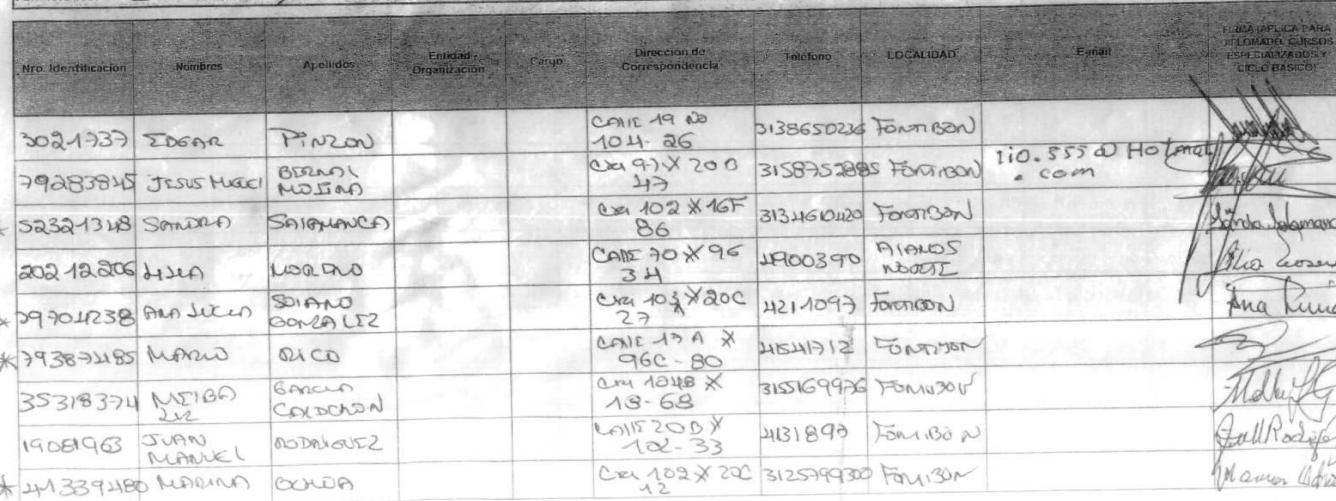 Nro. Identificación Nombres Apellidos Entidad - Organización Cargo Dirección de Correspondencia Teléfono LOCALIDAD E-mail FIRMA (APLICA PARA DIPLOMADO, CURSOS ESPECIALIZADOS Y CICLO BASICO)
3021737 EDGAR PINZON CALLE 19 No 104-26 3138650236 FONTIBON
79283845 JESUS MIGUEL BERNAL MOLINA Cra 97 X 20B 47 3158752885 FONTIBON 110.555@Hotmail.com
* 52321348 SANDRA SALAMANCA Cra 102 X 16F 86 3134610420 FONTIBON Sandra Salamanca
20212206 MORENO CALLE 70 X 96 34 4900390 ALAMOS NORTE
* 29704238 ANA LUCIA SOLANO GONZALEZ Cra 103 X 20C 27 4211097 FONTIBON Ana Lucia
* 79387485 MARIO RICO CALLE 17A X 96C-80 FONTIBON
35318374 MELBA LUZ GARCIA CALDERON Cra 104B X 18-68 3155169976 FONTIBON
19081963 JUAN MANUEL RODRIGUEZ CALLE 20B X 102-33 4131897 FONTIBON
* 41339480 MARINA OCHOA Cra 102 X 20C 12 3125799300 FONTIBON